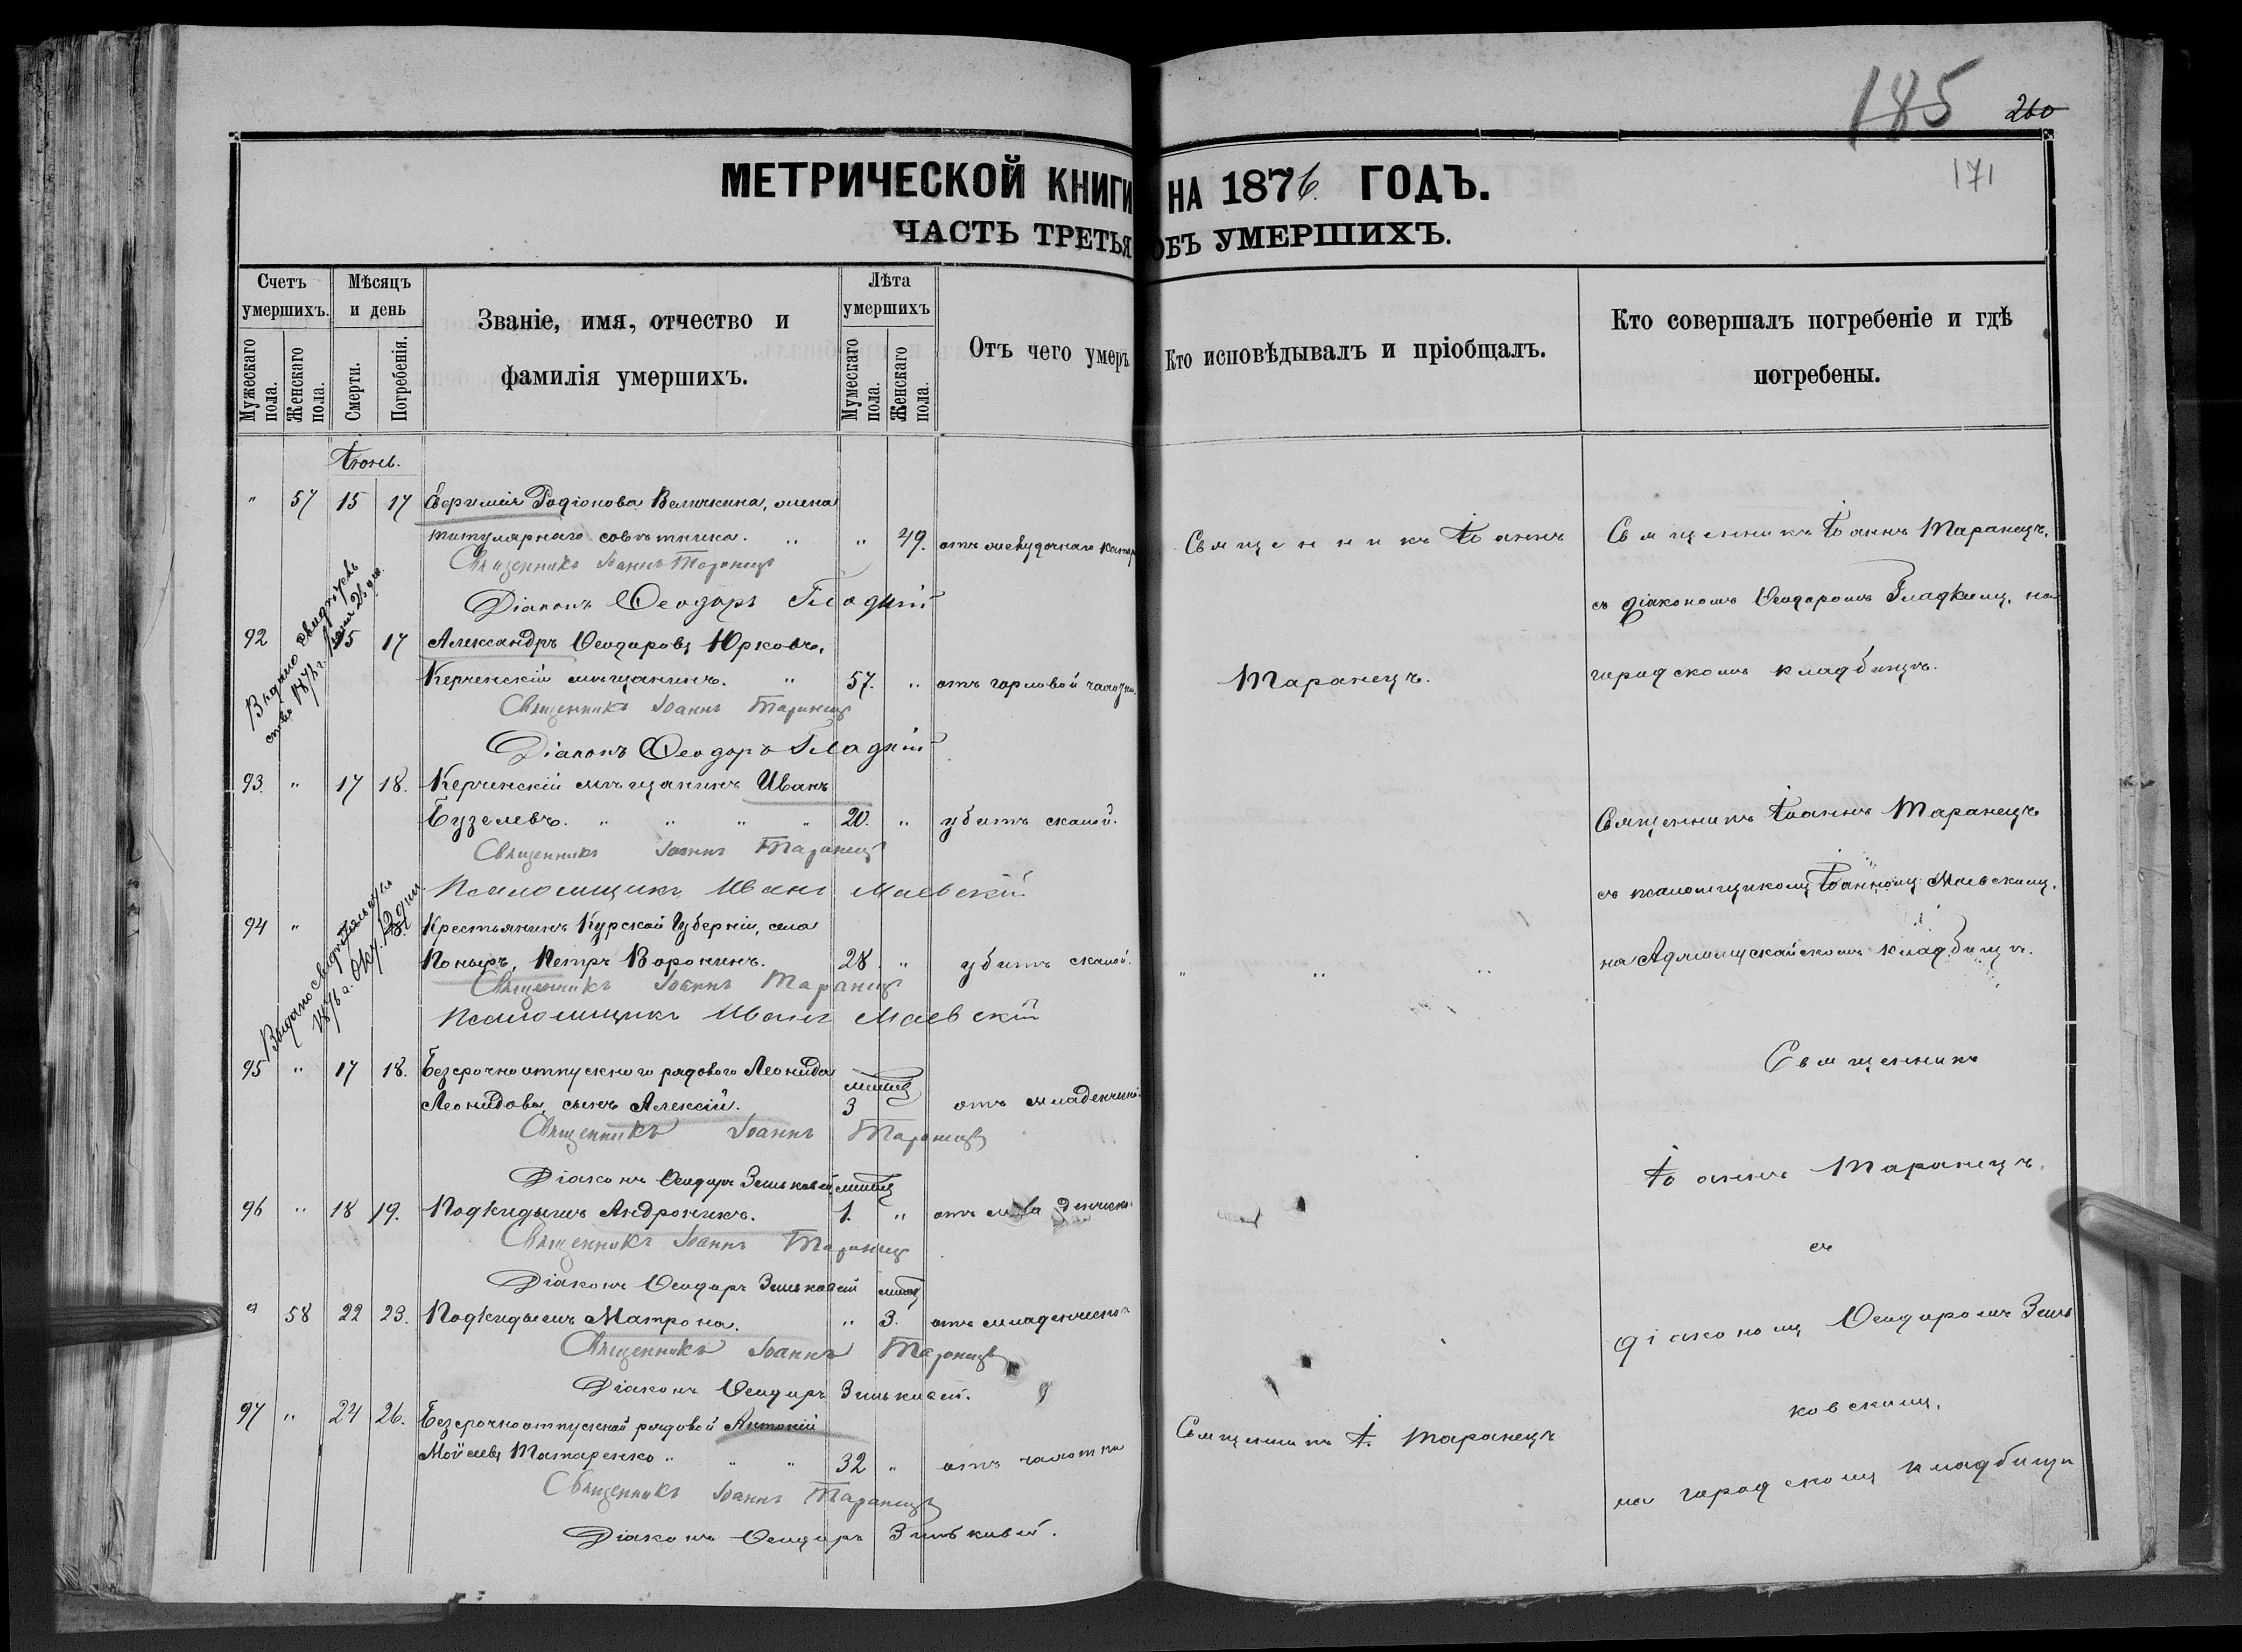 185
260
171
МЕТРИЧЕСКОЙ КНИГИ НА 1876 ГОДЪ.
ЧАСТЬ ТРЕТЬЯ ОБЪ УМЕРШИХЪ.
Счетъ умершихъ.
Мужескаго пола.
Женскаго пола.
Мѣсяцъ и день
Смерти.
Погребенія.
Званіе, имя, отчество и
фамилія умершихъ.
Лѣта умершихъ
Мужескаго пола.
Женскаго пола.
Отъ чего умеръ.
Кто исповѣдывалъ и пріобщалъ.
Кто совершалъ погребеніе и гдѣ
погребены.
Іюнь.
" 57 15 17 Евфимія Родіонова Величкина, жена
титулярнаго совѣтника. " " 49. отъ желудочнаго катар
Священникъ Іоаннъ Таранецъ
Діаконъ Ѳеодоръ Гладкій
92 15 17 Александръ Ѳеодоровъ Юрковъ,
Керченскій мѣщанинъ. " 57. " отъ горловой чахотки.
Священникъ Іоаннъ Таранецъ
Діаконъ Ѳеодоръ Гладкій
93. " 17 18. Керченскій мѣщанинъ Иванъ
Бузелевъ. " " " " 20. " убитъ скалой.
Священникъ Іоаннъ Таранецъ
Псаломщикъ Иванъ Маевскій
94 " 18. Крестьянинъ Курской Губерніи, села
Поныръ, Петръ Воронинъ. 28 " убитъ скалой.
Священникъ Іоаннъ Таранецъ
Псаломщикъ Иванъ Маевскій
95 " 17 18. Безсрочноотпускного рядового Леонида
Леонидова, сынъ Алексій. 3 отъ младенческ.
Священникъ Іоаннъ Таранецъ
Діаконъ Ѳеодоръ Зеньковскій
96 " 18 19. Подкидышъ Андроникъ. 1. " отъ младенческ.
Священникъ Іоаннъ Таранецъ
Діаконъ Ѳеодоръ
" 58 22 23. Подкидышъ Матрона. " 3. отъ младенческо
Священникъ Іоаннъ Таранецъ
Діаконъ Ѳеодоръ
97 " 24 26. Безсрочноотпускной рядовой Антоній
Мойсеевъ Татаренко " " " 32 " отъ чахотки
Священникъ Іоаннъ Таранецъ
Діаконъ Ѳеодоръ
Выдано свидѣтель
ство 1878 г.
Выдано свидѣтельство
1876 г. Окт. 12 дня.
Священникъ Іоаннъ
Таранецъ.
" " "
Священникъ І. Таранецъ
Священникъ Іоаннъ Таранецъ,
съ діакономъ Ѳеодоромъ Гладкимъ, на
городскомъ кладбищѣ.
Священникъ Іоаннъ Таранецъ
съ псаломщикомъ Іоанномъ Маевскимъ,
на Аджимушкайскомъ кладбищѣ.
Священникъ
Іоаннъ Таранецъ,
съ
діакономъ Ѳеодоромъ Зень
ковскимъ,
на городскомъ кладбищѣ